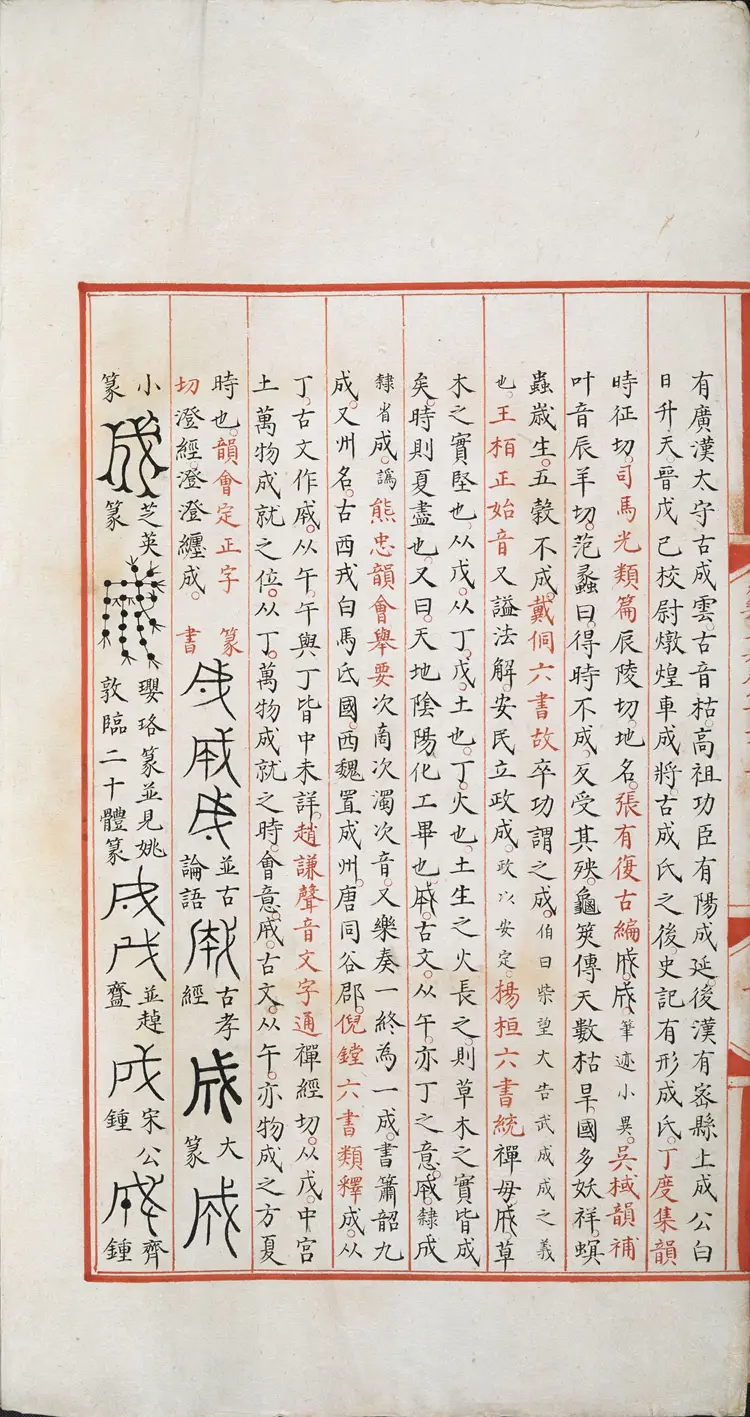 有廣漢太守古成雲。古音枯。高祖功臣有陽成延。後漢有密縣上成公白
日升天晉戊己校尉燉煌車成將。古成氏之後。史記有形成氏。丁度集韻
時征切。司馬光類篇辰陵切。地名。張有復古編成。筆迹小異。吳棫韻補
叶音辰羊切。范蠡曰。得時不成。反受其殃。龜筴傳天數枯旱。國多妖祥。螟
蟲歲生。五穀不成。戴侗六書故卒功謂之成。伯曰柴望大告武成成之義
也。王栢正始音又謚法解。安民立政成。政以安定。楊桓六書統禪毋草
木之實堅也。从戊。从丁。戊。土也。丁。火也。土生之火長之。則草木之實皆成
矣。時則夏盡也。又曰。天地陰陽化工畢也。古文。从午。亦丁之意。隸成
隸省成。譌熊忠韻會舉要次商次濁次音。又樂奏一終為一成。書簫韶九
成。又州名。古西戎白馬氏國。西魏置成州。唐同谷郡。倪鏜六書類釋成。从
丁。古文作。从午。午與丁皆中未詳。趙謙聲音文字通禪經切。从戊。中宮
土萬物成就之位。从丁。萬物成就之時。會意。古文。从午。亦物成之方夏
時也。韻會定正字切澄經。澄澄纏成。篆書 並古論語 古孝經 大篆
小篆 芝英篆 瓔珞篆並見姚敦臨二十體篆 並趠齍 宋公鍾 齊鍾